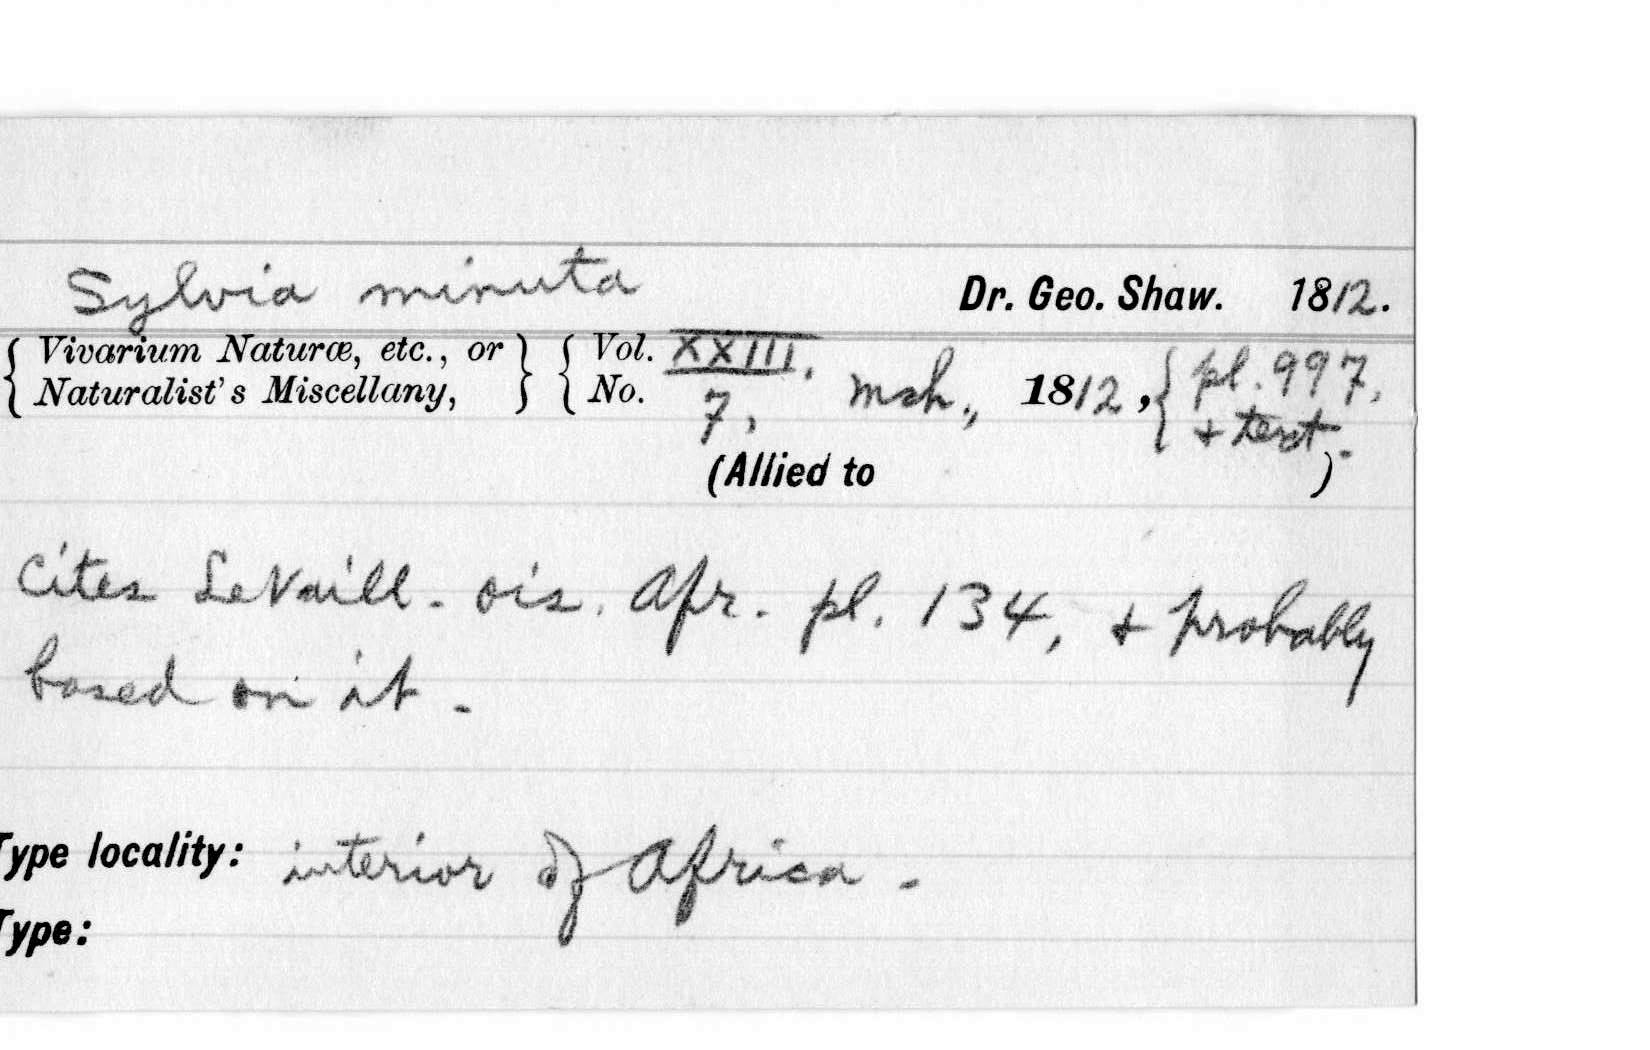 Sylvia minuta Dr. Geo. Shaw. 1812.
{ Vivarium Naturæ, etc., or } { Vol. XXIII.
{ Naturalist's Miscellany, } { No. 7, Mch., 1812, { pl. 997,
+ text.
(Allied to )
Cites LeVaill. ois. Afr. pl. 134, + probably
based on it.
Type locality: interior of Africa.
Type: